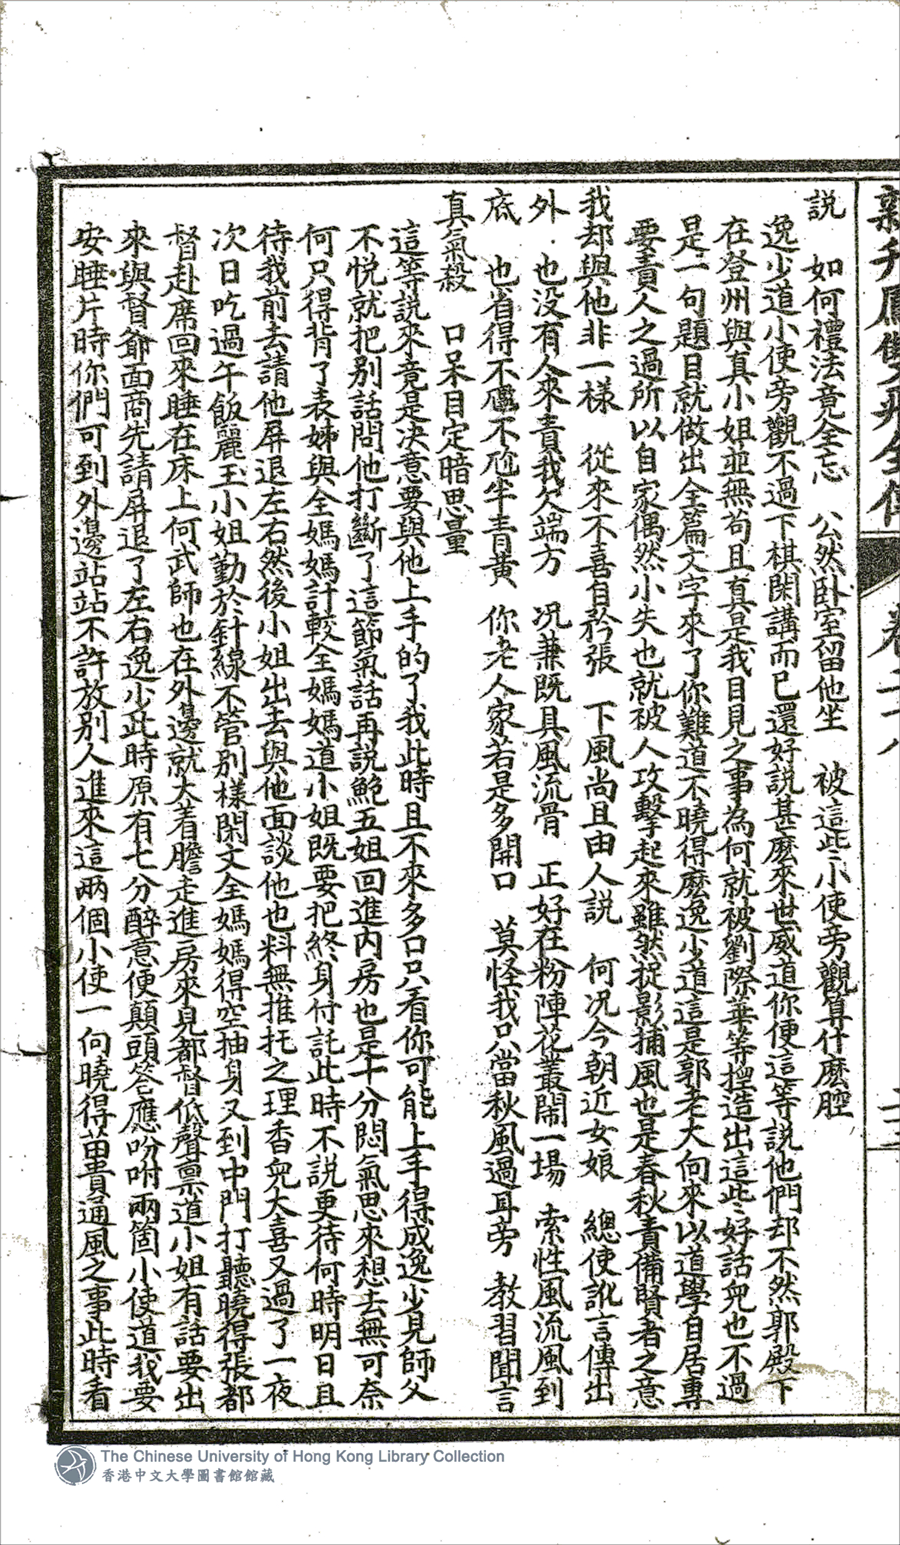 說　如何禮法竟全忘　公然卧室留他坐　被這些小使旁觀算什麽腔
逸少道小使旁觀不過下棋閑講而已還好説甚麽來世威道你便這等説他們却不然郭殿下
在登州與真小姐並無苟且真是我目見之事為何就被劉際華等揑造出這些好話兒也不過
是一句題目就做出全篇文字來了你難道不曉得麽逸少道這是郭老大向來以道學自居專
要責人之過所以自家偶然小失也就被人攻擊起來雖然捉影捕風也是春秋責備賢者之意
我却與他非一樣　從來不喜自矜張　下風尚且由人説　何况今朝近女娘　總使訛言傳出
外　也没有人來責我欠端方　况兼既具風流骨　正好在粉陣花叢鬧一場　索性風流風到
底　也省得不尷不尬半青黃　你老人家若是多開口　莫怪我只當秋風過耳旁　教習聞言
真氣殺　口呆目定暗思量
這等説來竟是决意要與他上手的了我此時且不來多口只看你可能上手得成逸少見師父
不悦就把别話問他打斷了這節氣話再説鮑五姐回進内房也是十分悶氣思來想去無可奈
何只得背了表姊與全媽媽計較全媽媽道小姐既要把終身付託此時不説更待何時明日且
待我前去請他屏退左右然後小姐出去與他面談他也料無推托之理香兒大喜又過了一夜
次日吃過午飯麗玉小姐勤於針線不管别樣閑文全媽媽得空抽身又到中門打聽曉得張都
督赴席回來睡在床上何武師也在外邊就大着膽走進房來見都督低聲禀道小姐有話要出
來與督爺面商先請屏退了左右逸少此時原有七分醉意便顛頭答應吩咐兩箇小使道我要
安睡片時你們可到外邊站站不許放别人進來這兩個小使一向曉得苗貴通風之事此時看
卷二十八
The Chinese University of Hong Kong Library Collection
香港中文大學圖書館館藏